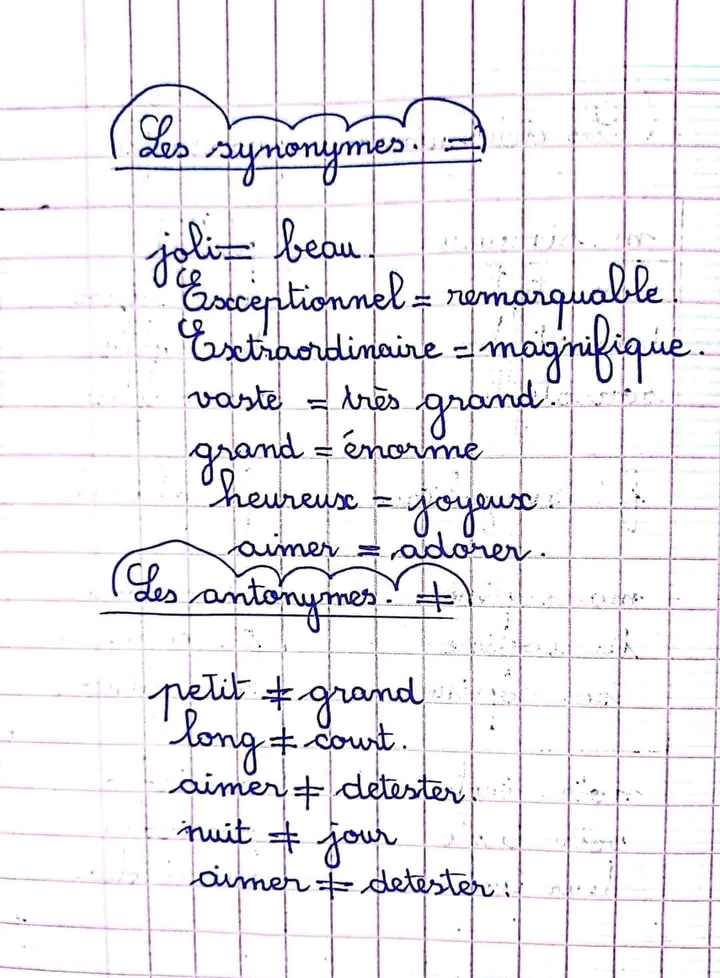 Les synonymes. =
joli = beau.
Exceptionnel = remarquable.
Extraordinaire = magnifique.
vaste = très grand.
grand = énorme
heureux = joyeux.
aimer = adorer.
Les antonymes. ≠
petit ≠ grand
long ≠ court.
aimer ≠ detester.
nuit ≠ jour
aimer ≠ detester.